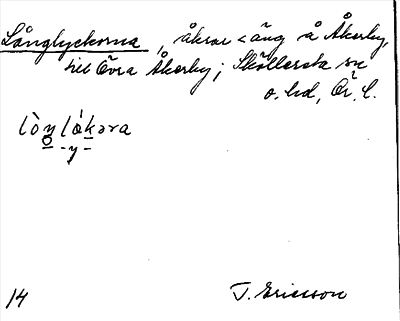 Långlyckorna, åkrar < äng å Åkerby,
till Övra Åkerby; Sköllersta sn
o. hd, Ör. l.
lò̀ŋlákəra
-y-
14
T. Ericsson